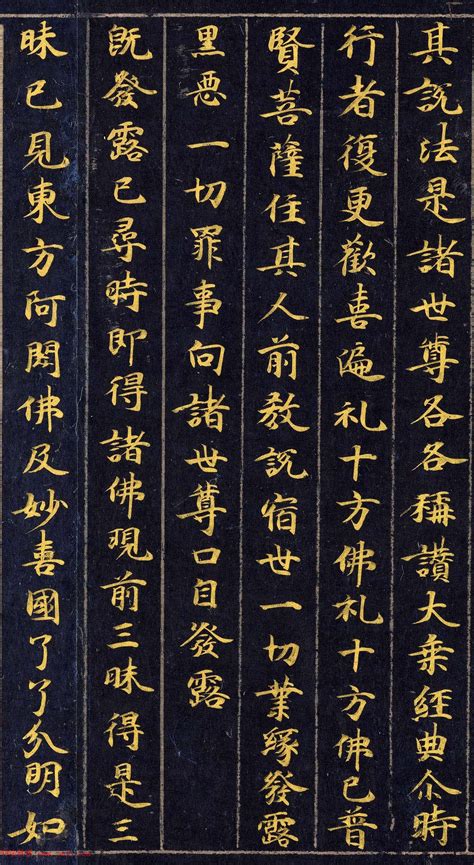 其説法是諸世尊各各稱讃大乗經典尒時
行者復更歡喜遍礼十方佛礼十方佛已普
賢菩薩住其人前教説宿世一切業縁發露
黒惡一切罪事向諸世尊口自發露
既發露已尋時即得諸佛現前三昧得是三
昧已見東方阿閦佛及妙喜國了了分明如